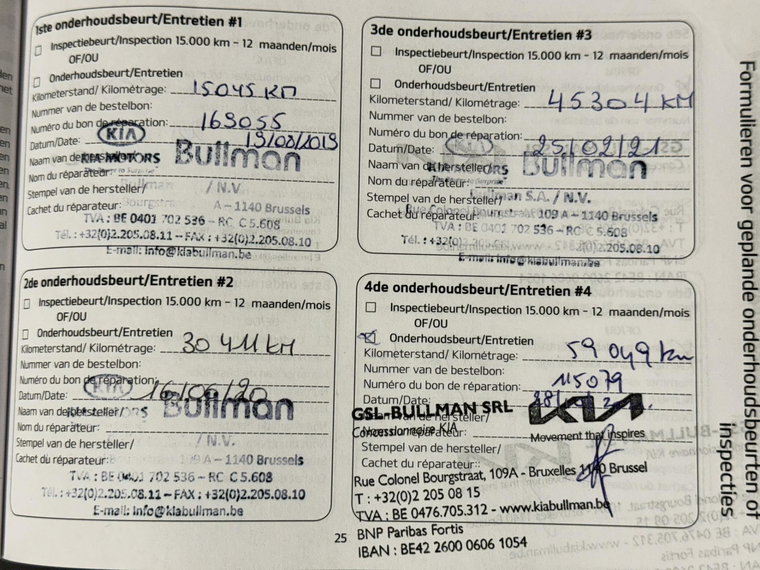 1ste onderhoudsbeurt/Entretien #1
Inspectiebeurt/Inspection 15.000 km - 12 maanden/mois
OF/OU
Onderhoudsbeurt/Entretien
Kilometerstand/ Kilométrage: 15045 KM
Nummer van de bestelbon:
Numéro du bon de réparation: 169055
Datum/Date: 19/08/2019
Naam van de hersteller/
KIA MOTORS Bullman
Nom du réparateur:
Stempel van de hersteller/ / N.V.
Cachet du réparateur: A - 1140 Brussels
TVA : BE 0401 702 536 - RC C 5.608
Tél. : +32(0)2.205.08.11 - FAX : +32(0)2.205.08.10
E-mail: info@kiabullman.be
2de onderhoudsbeurt/Entretien #2
Inspectiebeurt/Inspection 15.000 km - 12 maanden/mois
OF/OU
Onderhoudsbeurt/Entretien
Kilometerstand/ Kilométrage: 30411 KM
Nummer van de bestelbon:
Numéro du bon de réparation:
Datum/Date: 16/06/20
KIA Bullman
Naam van de hersteller/
Nom du réparateur:
Stempel van de hersteller/ / N.V.
Cachet du réparateur: 109 A - 1140 Brussels
TVA : BE 0401 702 536 - RC C 5.608
Tél. : +32(0)2.205.08.11 - FAX : +32(0)2.205.08.10
E-mail: info@kiabullman.be
3de onderhoudsbeurt/Entretien #3
Inspectiebeurt/Inspection 15.000 km - 12 maanden/mois
OF/OU
Onderhoudsbeurt/Entretien
Kilometerstand/ Kilométrage: 45304 KM
Nummer van de bestelbon:
Numéro du bon de réparation:
Datum/Date: 25/02/21
Naam van de hersteller/ Bullman
Nom du réparateur:
Stempel van de hersteller/ Bullman S.A. / N.V.
Cachet du réparateur: Rue Colonel Bourgstraat 109 A - 1140 Brussels
TVA : BE 0401 702 536 - RC C 5.608
Tél. : +32(0)2.205.08.11 - FAX : +32(0)2.205.08.10
E-mail: info@kiabullman.be
4de onderhoudsbeurt/Entretien #4
Inspectiebeurt/Inspection 15.000 km - 12 maanden/mois
OF/OU
Onderhoudsbeurt/Entretien
Kilometerstand/ Kilométrage: 59049 km
Nummer van de bestelbon:
Numéro du bon de réparation: 115079
Datum/Date:
Naam van de hersteller/
GSL-BULLMAN SRL KIA
Nom du réparateur:
Concessionnaire KIA Movement that inspires
Stempel van de hersteller/
Cachet du réparateur:
Rue Colonel Bourgstraat, 109A - Bruxelles 1140 Brussel
T : +32(0)2 205 08 15
TVA : BE 0476.705.312 - www.kiabullman.be
BNP Paribas Fortis
IBAN : BE42 2600 0606 1054
25
Formulieren voor geplande onderhoudsbeurten of
inspecties